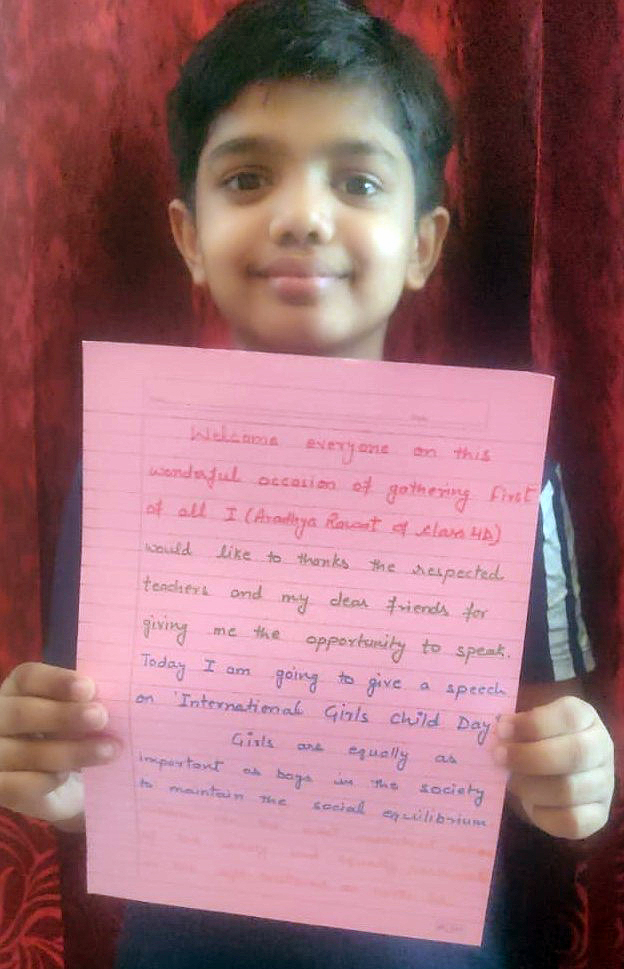 Welcome everyone on this
wonderful occasion of gathering First
of all I (Aradhya Rawat of class 4D)
would like to thanks the respected
teachers and my dear friends for
giving me the opportunity to speak.
Today I am going to give a speech
on 'International Girls Child Day'
Girls are equally as
important as boys in the society
to maintain the social equilibrium